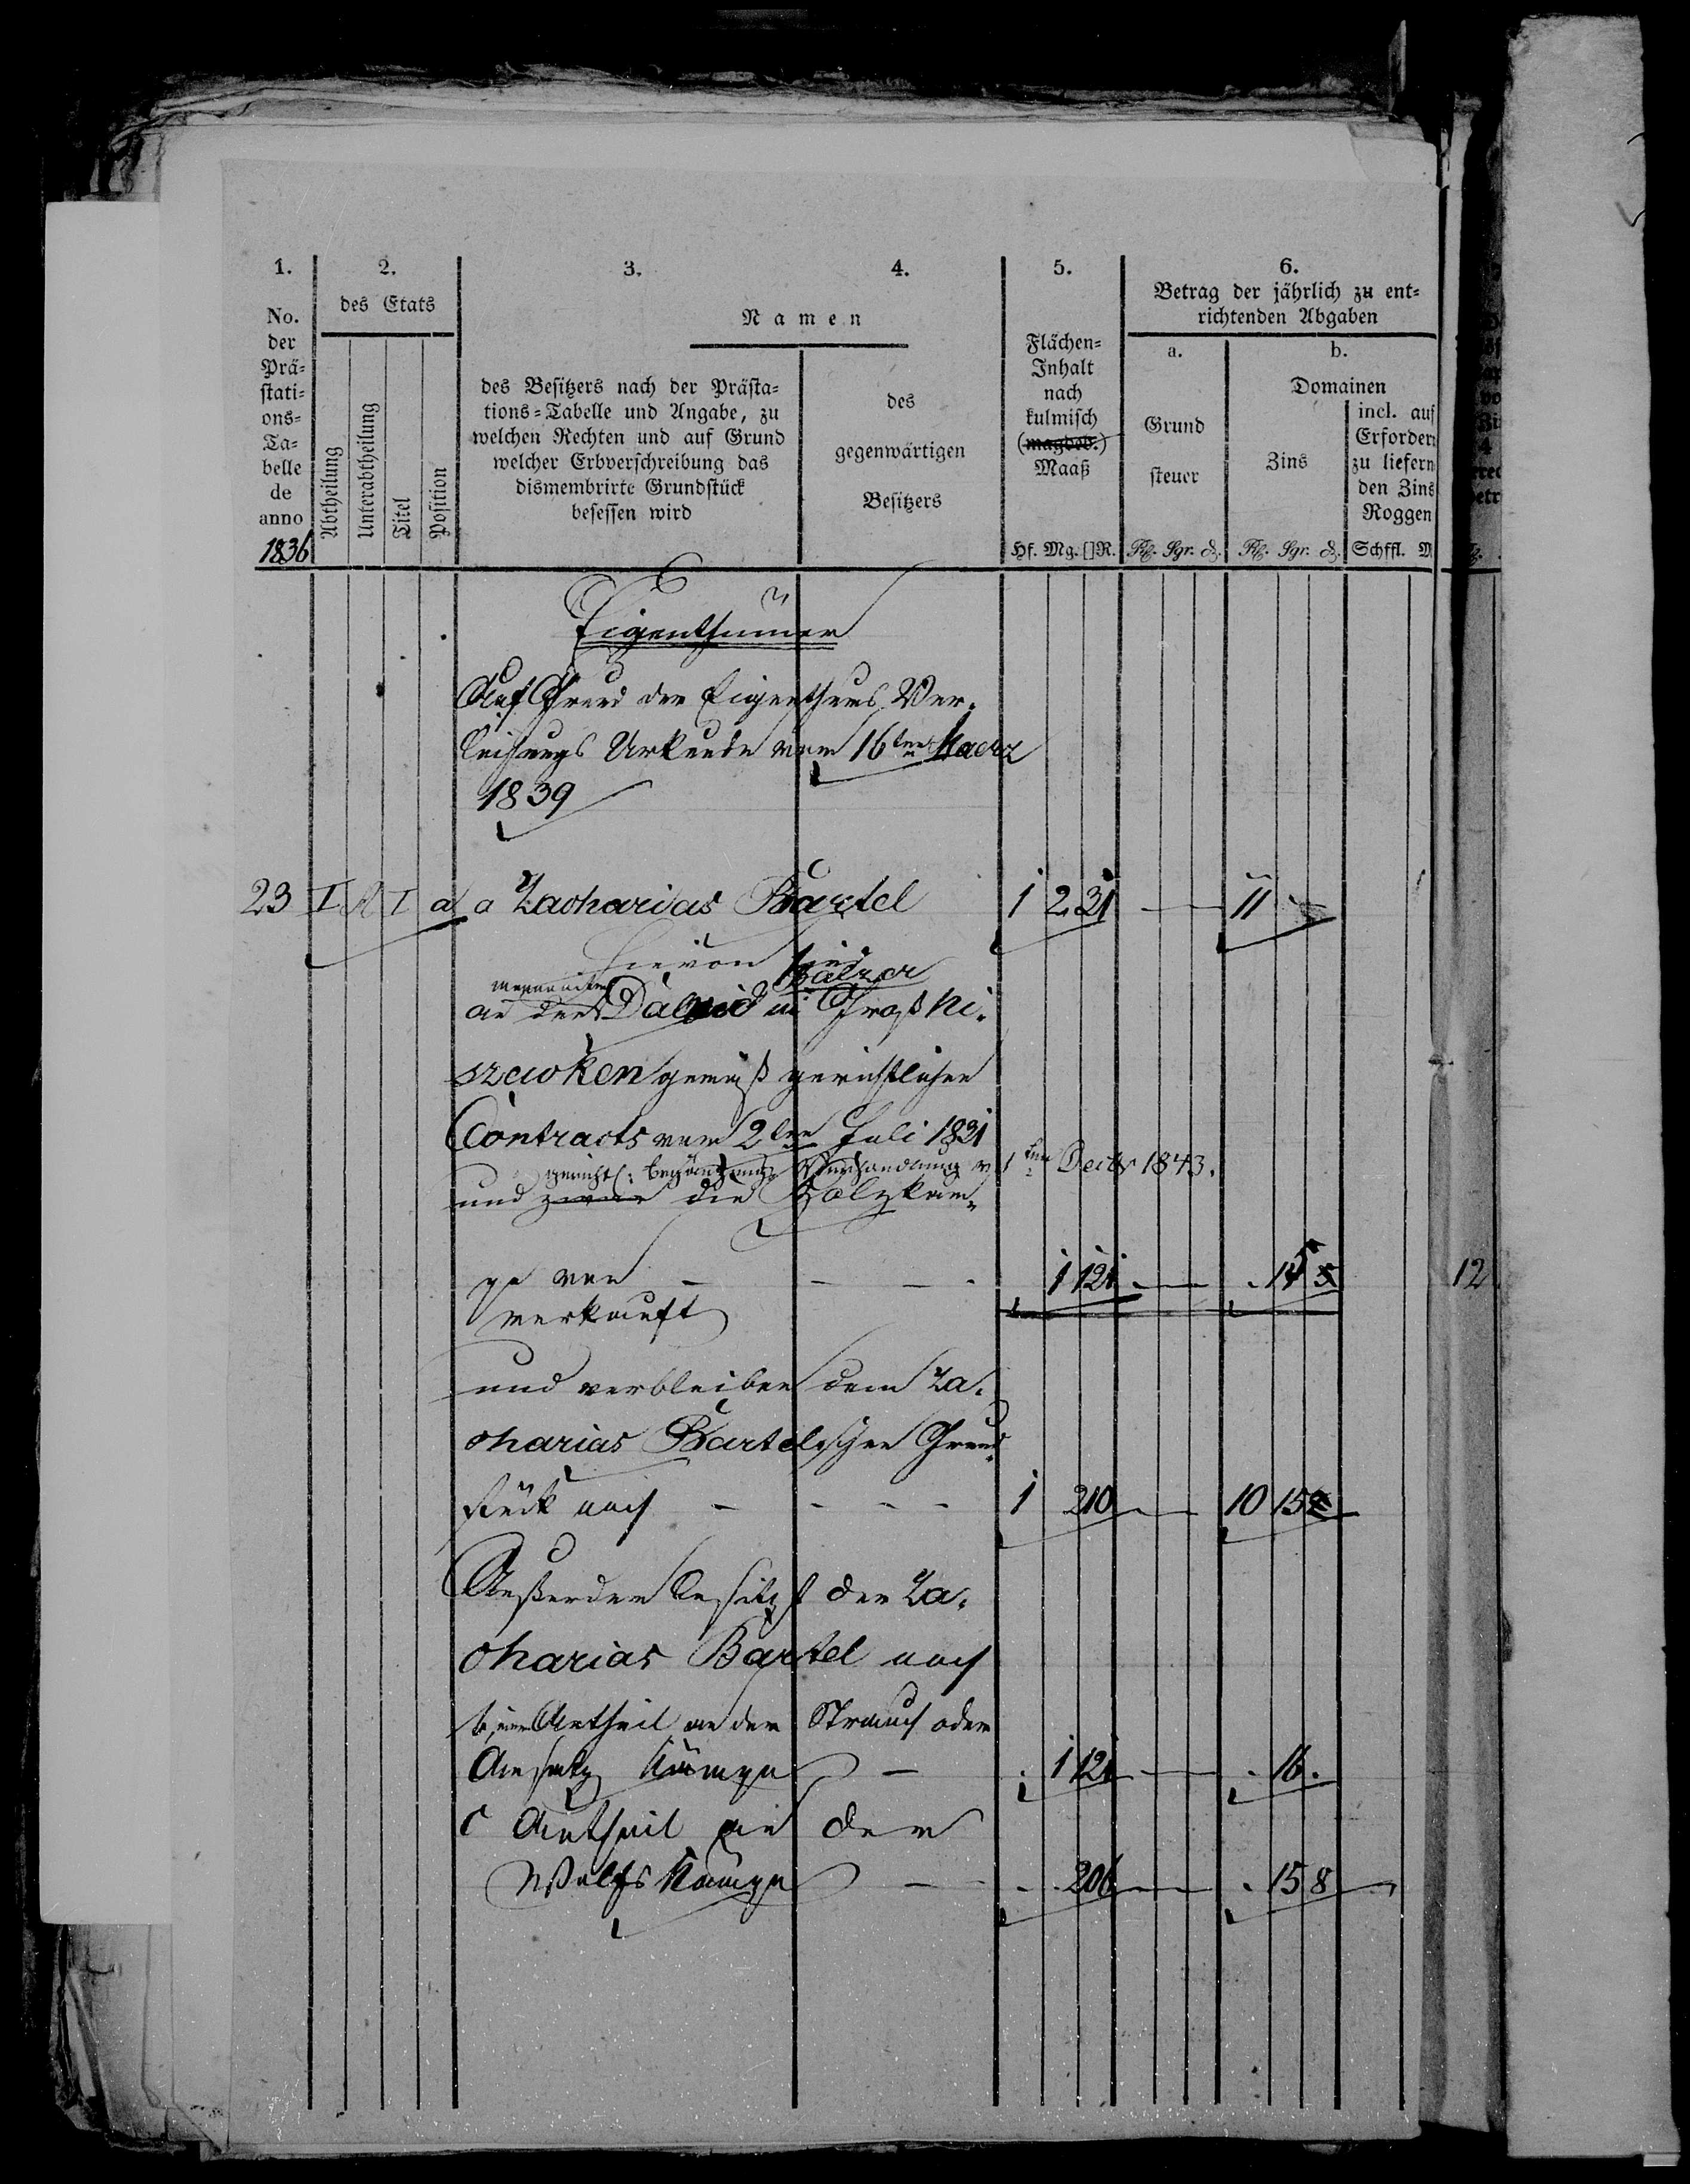 1. 2. 3. 4. 5. 6.
No. der Prä-stati-ons-Ta-belle de anno 1836
des Etats
Abtheilung Unterabtheilung Titel Position
Namen
des Besitzers nach der Prästa-
tions-Tabelle und Angabe, zu
welchen Rechten und auf Grund
welcher Erbverschreibung das
dismembrirte Grundstück
besessen wird
des
gegenwärtigen
Besitzers
Flächen-
Inhalt
nach
kulmisch
(magdeb.)
Maaß
Hf. Mg. []R.
Betrag der jährlich zu ent-
richtenden Abgaben
a.
Grund
steuer
Rf. Sgr. d.
b.
Domainen
Zins
Rf. Sgr. d.
incl. auf
Erfordern
zu liefern
den Zins
Roggen
Schffl. M
Eigenthümer
Auf Grund der Eigenthums Ver-
leihungs Urkunde vom 16ten Maerz
1839
23 I A I a a Zacharias Bartel 1 2 31 — 11 -
hievon sind
Balzer
an den David in Groß Ni-
szewken gemäß gerichtlichen
Contracts vom 2ten Juli 1831
gerichtl: Verhandlung v 1ten Decbr 1843.
und zwar die Holzkäm-
pe von - - - 1 121 — . 14 5 12
verkauft
und verbleiben dem Za-
charias Bartelschen Grund
stück noch - - - - 1 210 — 10 15
Außerdem besitzt der Za-
charias Bartel noch
b, Antheil an der Strauch oder
Ansatz Kämpe — . 1 121 — . 16 .
c Antheil an der
Wolfs Kämpe — . . 206 — . 15 8